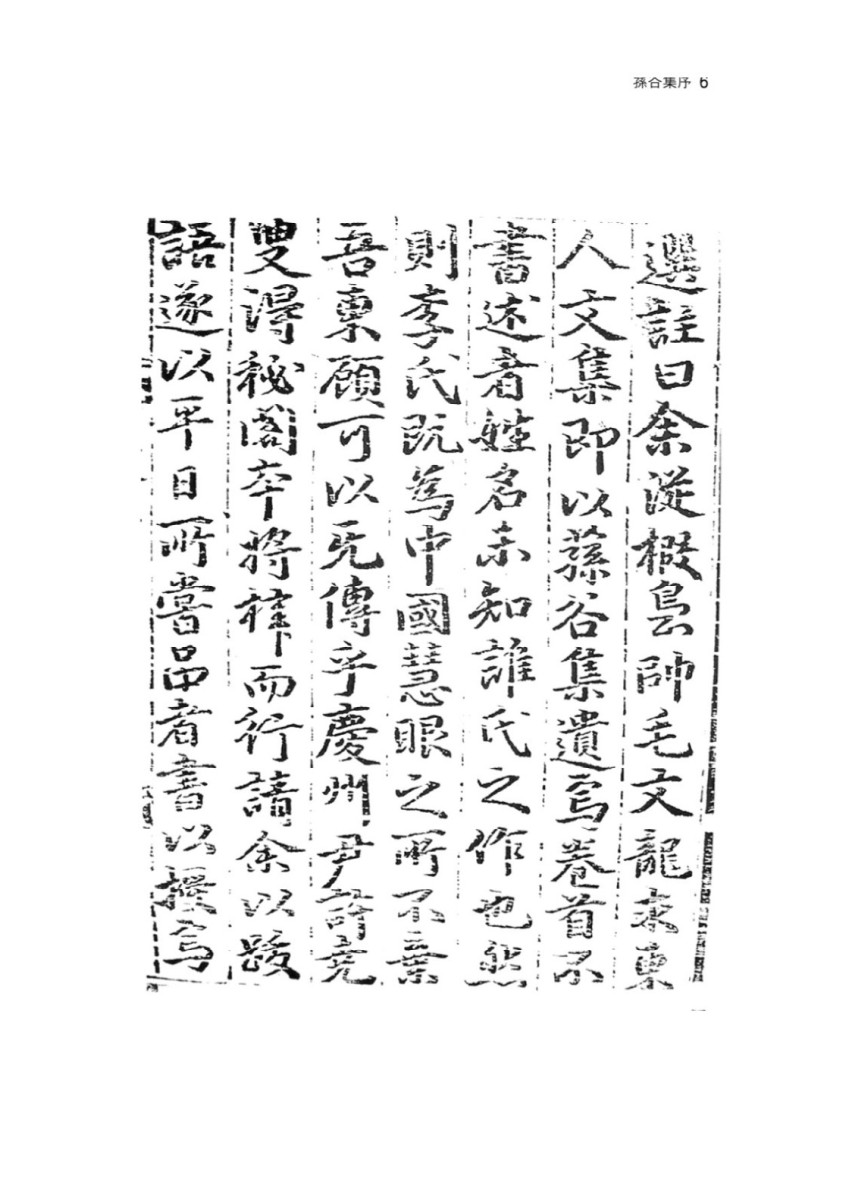 蓀谷集序 6
選註曰余從椵島帥毛文龍求東
人文集即以蓀谷集遺焉卷首不
書述者姓名未知誰氏之作也然
則李氏旣爲中國慧眼之所不棄
吾東顧可以无傳乎慶州尹許完
叟得秘閣本將梓而行請余以跋
語遂以平日所嘗品者書以授焉